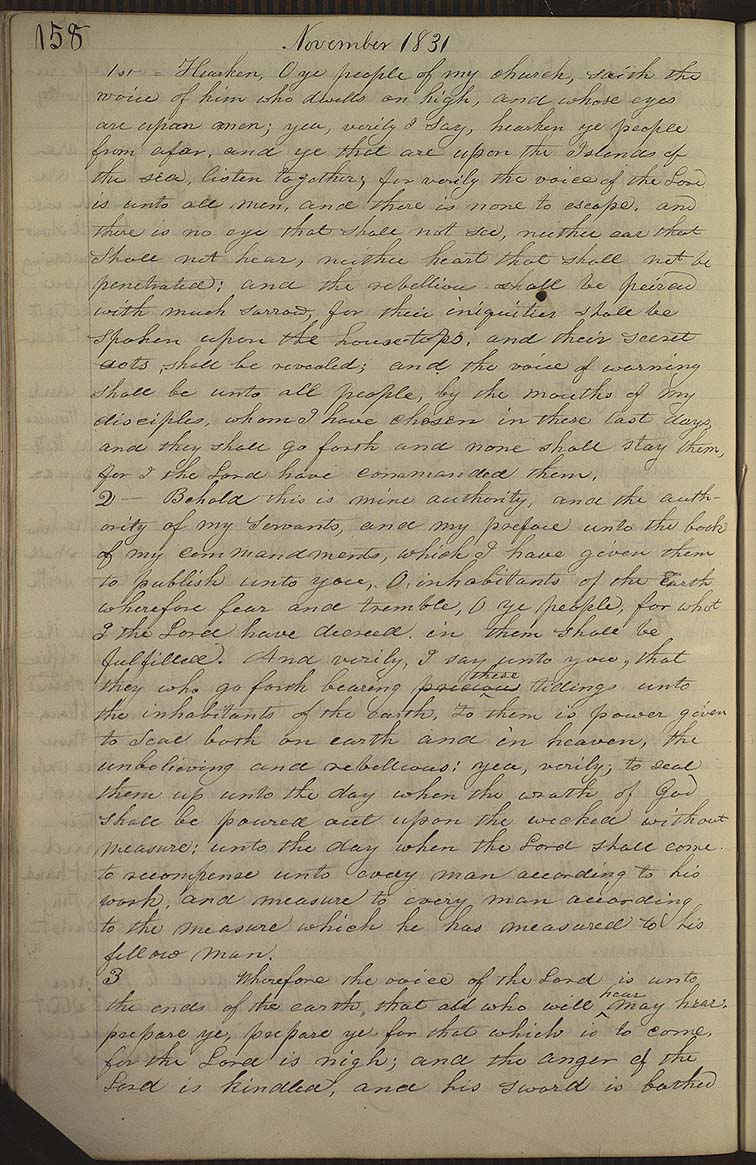 158
November 1831
1st = Hearken, O ye people of my church, saith the
voice of him who dwells on high, and whose eyes
are upon men; yea, verily I Say, hearken ye people
from afar, and ye that are upon the Islands of
the sea, listen together; for verily the voice of the Lord
is unto all men, and there is none to escape. and
there is no eye that shall not see, neither ear that
Shall not hear, neither heart that shall not be
penetrated; and the rebellious shall be peirced
with much sorrow, for their iniquities shall be
spoken upon the house-tops, and their secret
acts shall be revealed; and the voice of warning
shall be unto all people, by the mouths of my
disciples, whom I have chosen in these last days,
and they shall go forth and none shall stay them,
for I the Lord have commanded them.
2 — Behold this is mine authority, and the auth-
ority of my Servants, and my preface unto the book
of my commandments, which I have given them
to publish unto you, O, inhabitants of the Earth
wherefore fear and tremble, O ye people, for what
I the Lord have decreed. in them shall be
fulfilled. And verily, I say unto you, that
they who go forth bearing precious these tidings unto
the inhabitants of the earth, to them is power given
to Seal both on earth and in heaven, the
unbelieving and rebellious: yea, verily; to seal
them up unto the day when the wrath of God
shall be poured out upon the wicked without
measure: unto the day when the Lord shall come
to recompense unto every man according to his
work, and measure to every man according
to the measure which he has measured to his
fellow man.
3 Wherefore the voice of the Lord is unto
the ends of the earth, that all who will hear may hear:
prepare ye, prepare ye for that which is to come.
for the Lord is nigh; and the anger of the
Lord is kindled, and his sword is bathed